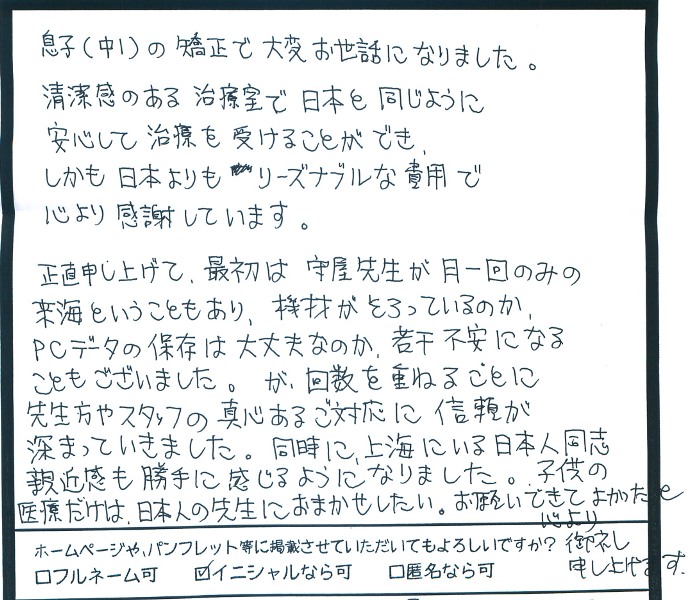 息子(中1)の矯正で大変お世話になりました。
清潔感のある治療室で日本と同じように
安心して治療を受けることができ、
しかも日本よりもリーズナブルな費用で
心より感謝しています。
正直申し上げて、最初は守屋先生が月一回のみの
来海ということもあり、機材がそろっているのか、
PCデータの保存は大丈夫なのか、若干不安になる
こともございました。が、回数を重ねるごとに
先生方やスタッフの真心あるご対応に信頼が
深まっていきました。同時に、上海にいる日本人同志
親近感も勝手に感じるようになりました。子供の
医療だけは、日本人の先生におまかせしたい。お願いできてよかったと
心より
御礼
申し上げます。
ホームページや、パンフレット等に掲載させていただいてもよろしいですか?
□フルネーム可 ☑イニシャルなら可 □匿名なら可